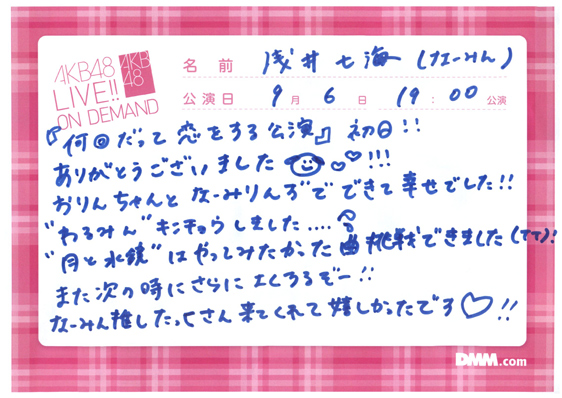 AKB48
LIVE!!
ON DEMAND
AKB
48
名前 浅井七海(なーみん)
公演日 9月6日 19:00公演
『何回だって恋をする公演』初日!!
ありがとうございました ♡♡!!!
おりんちゃんと なーみりんろ"で できて幸せでした!!
"わるみん" キンチョウしました....
"月と水鏡" はやってみたかった曲 挑戦できました(TT)!
また次の時にさらに よくするぞー!!
なーみん推したっくさん来てくれて嬉しかったです♡!!
DMM.com